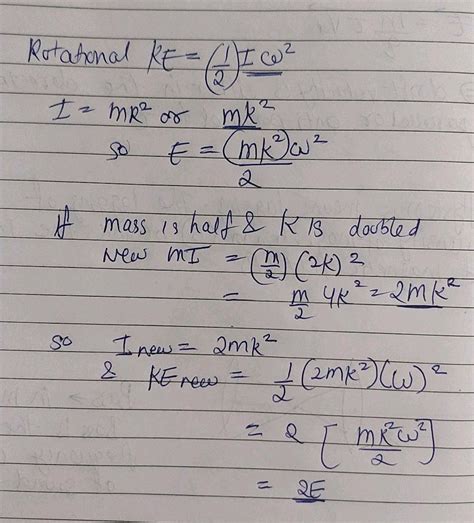 Rotational KE = (1/2) I ω²
I = mR² or mk²
so E = (mk²)ω² / 2
If mass is half & K is doubled
New MI = (m/2) (2k)²
= m/2 4k² = 2mk²
so I new = 2mk²
& KE new = 1/2 (2mk²)(ω)²
= 2 [mk²ω² / 2]
= 2E